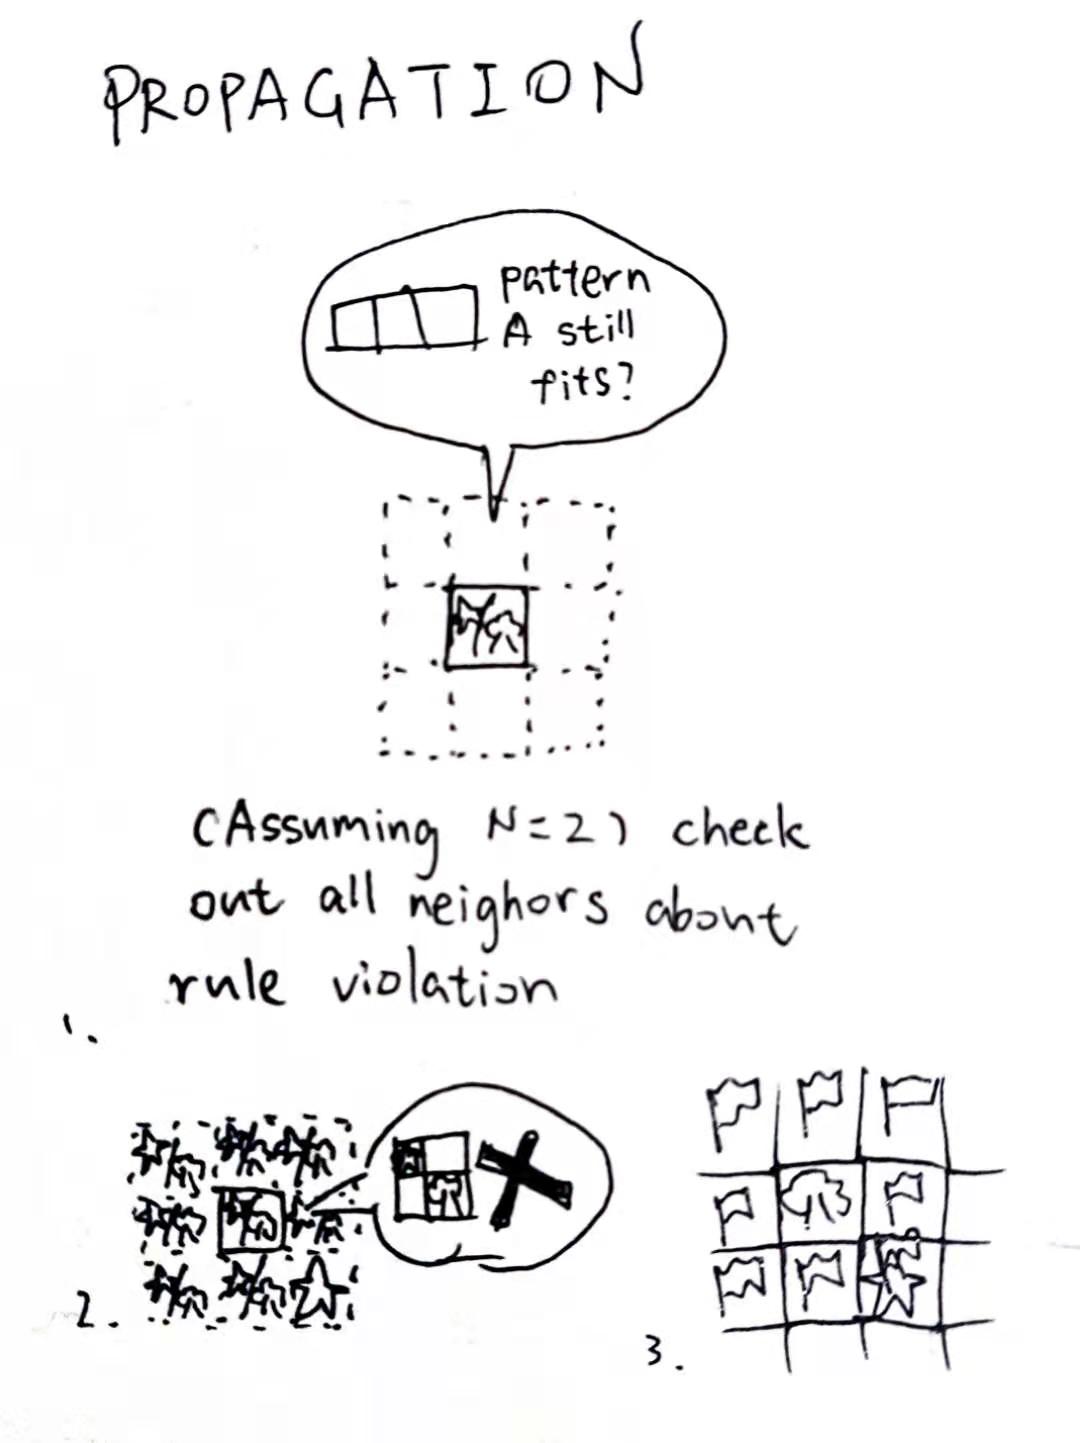 PROPAGATION
pattern
A still
fits?
(Assuming N=2) check
out all neighors about
rule violation
1.
2.
3.